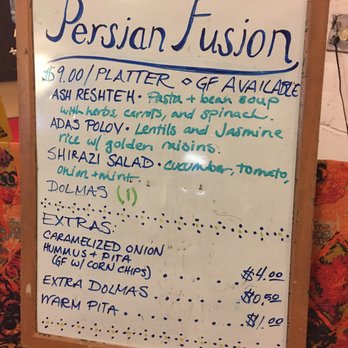 Persian Fusion
$9.00/PLATTER ⋄ GF AVAILABLE
ASH RESHTEH • Pasta + bean soup
with herbs, carrots, and spinach.
ADAS POLOV • Lentils and Jasmine
rice w/ golden raisins.
SHIRAZI SALAD • cucumber, tomato,
onion + mint.
DOLMAS (1)
EXTRAS:
CARAMELIZED ONION
HUMMUS + PITA
(GF W/ CORN CHIPS) . . . . $4.00
EXTRA DOLMAS . . . . . $0.50
WARM PITA . . . . . . $1.00